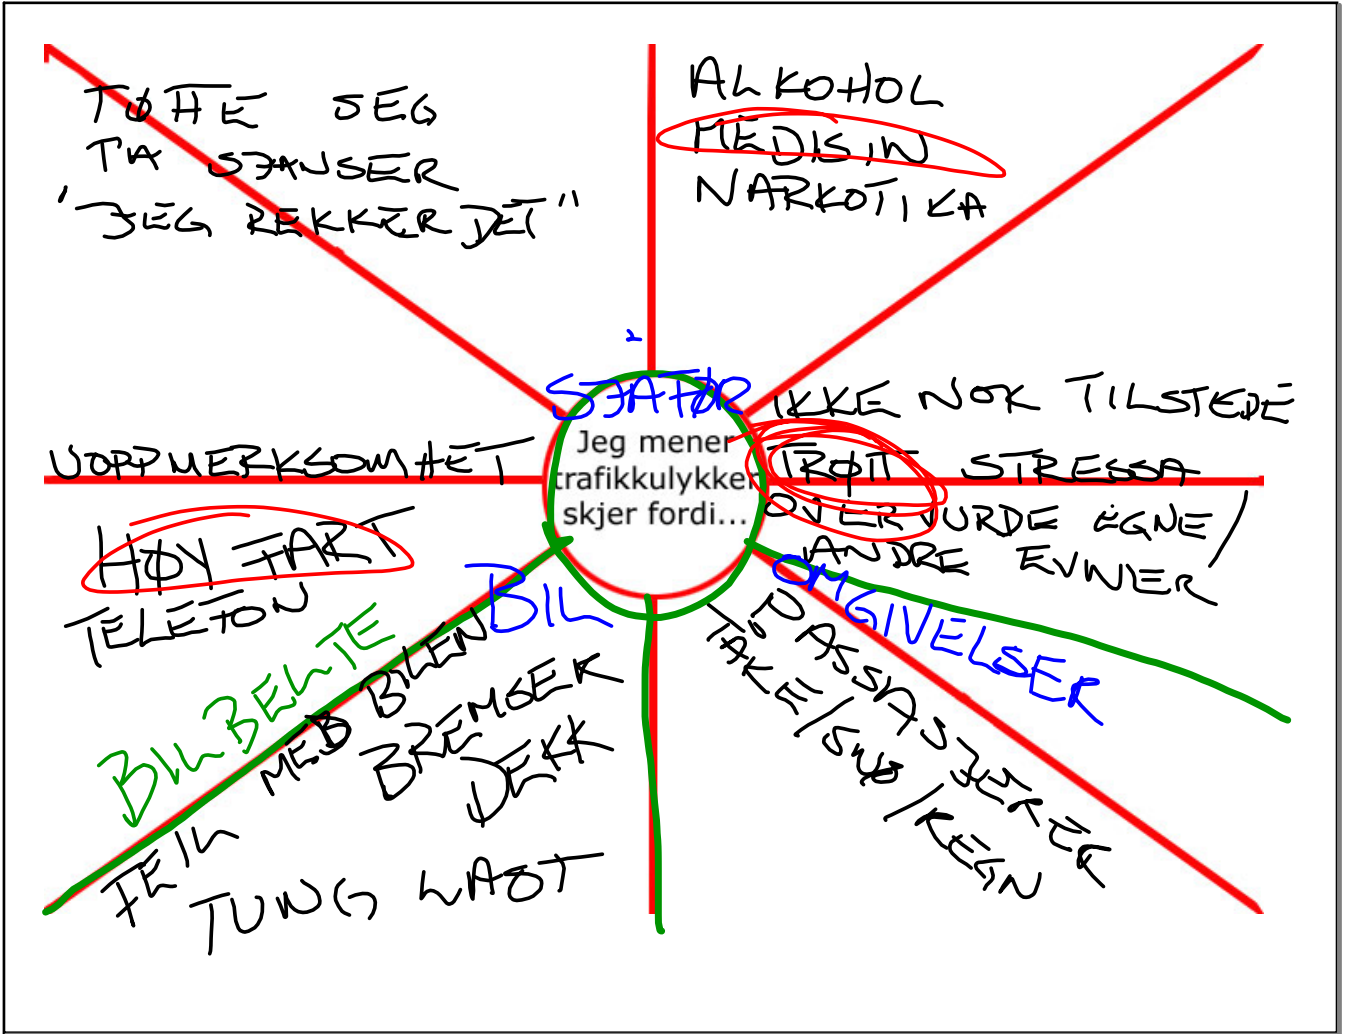 TØFFE SEG
TA SJANSER
"JEG REKKER DET"
ALKOHOL
MEDISIN
NARKOTIKA
SJÅFØR
Jeg mener
trafikkulykker
skjer fordi...
IKKE NOK TILSTEDE
TRØTT STRESSA
OVERVURDE EGNE/
ANDRE EVNER
UOPPMERKSOMHET
HØY FART
TELEFON
BILBELTE
BIL
FEIL MED BILEN
BREMSER
DEKK
TUNG LAST
OMGIVELSER
PASSASJERER
TÅKE/SNØ/REGN